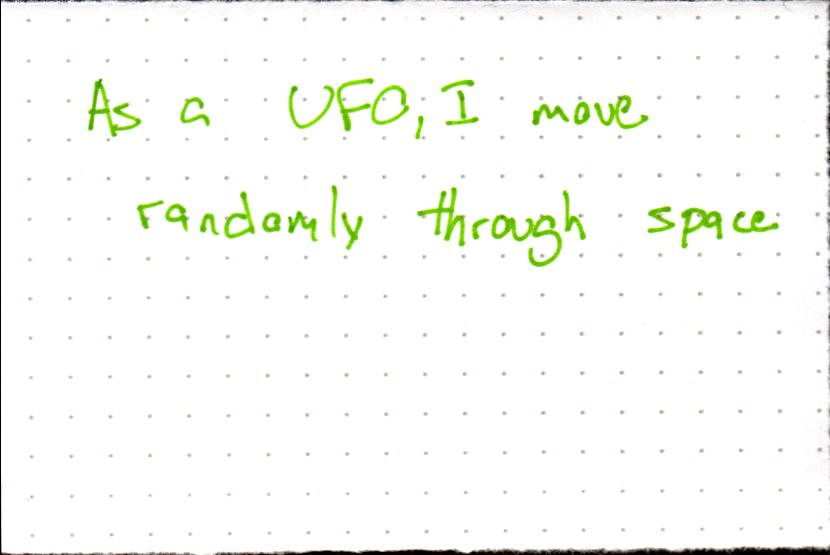 As a UFO, I move
randomly through space